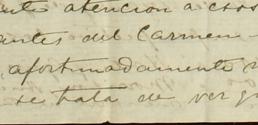 atencion a esos
antes del Carmen
afortunadamente
se trata de ver